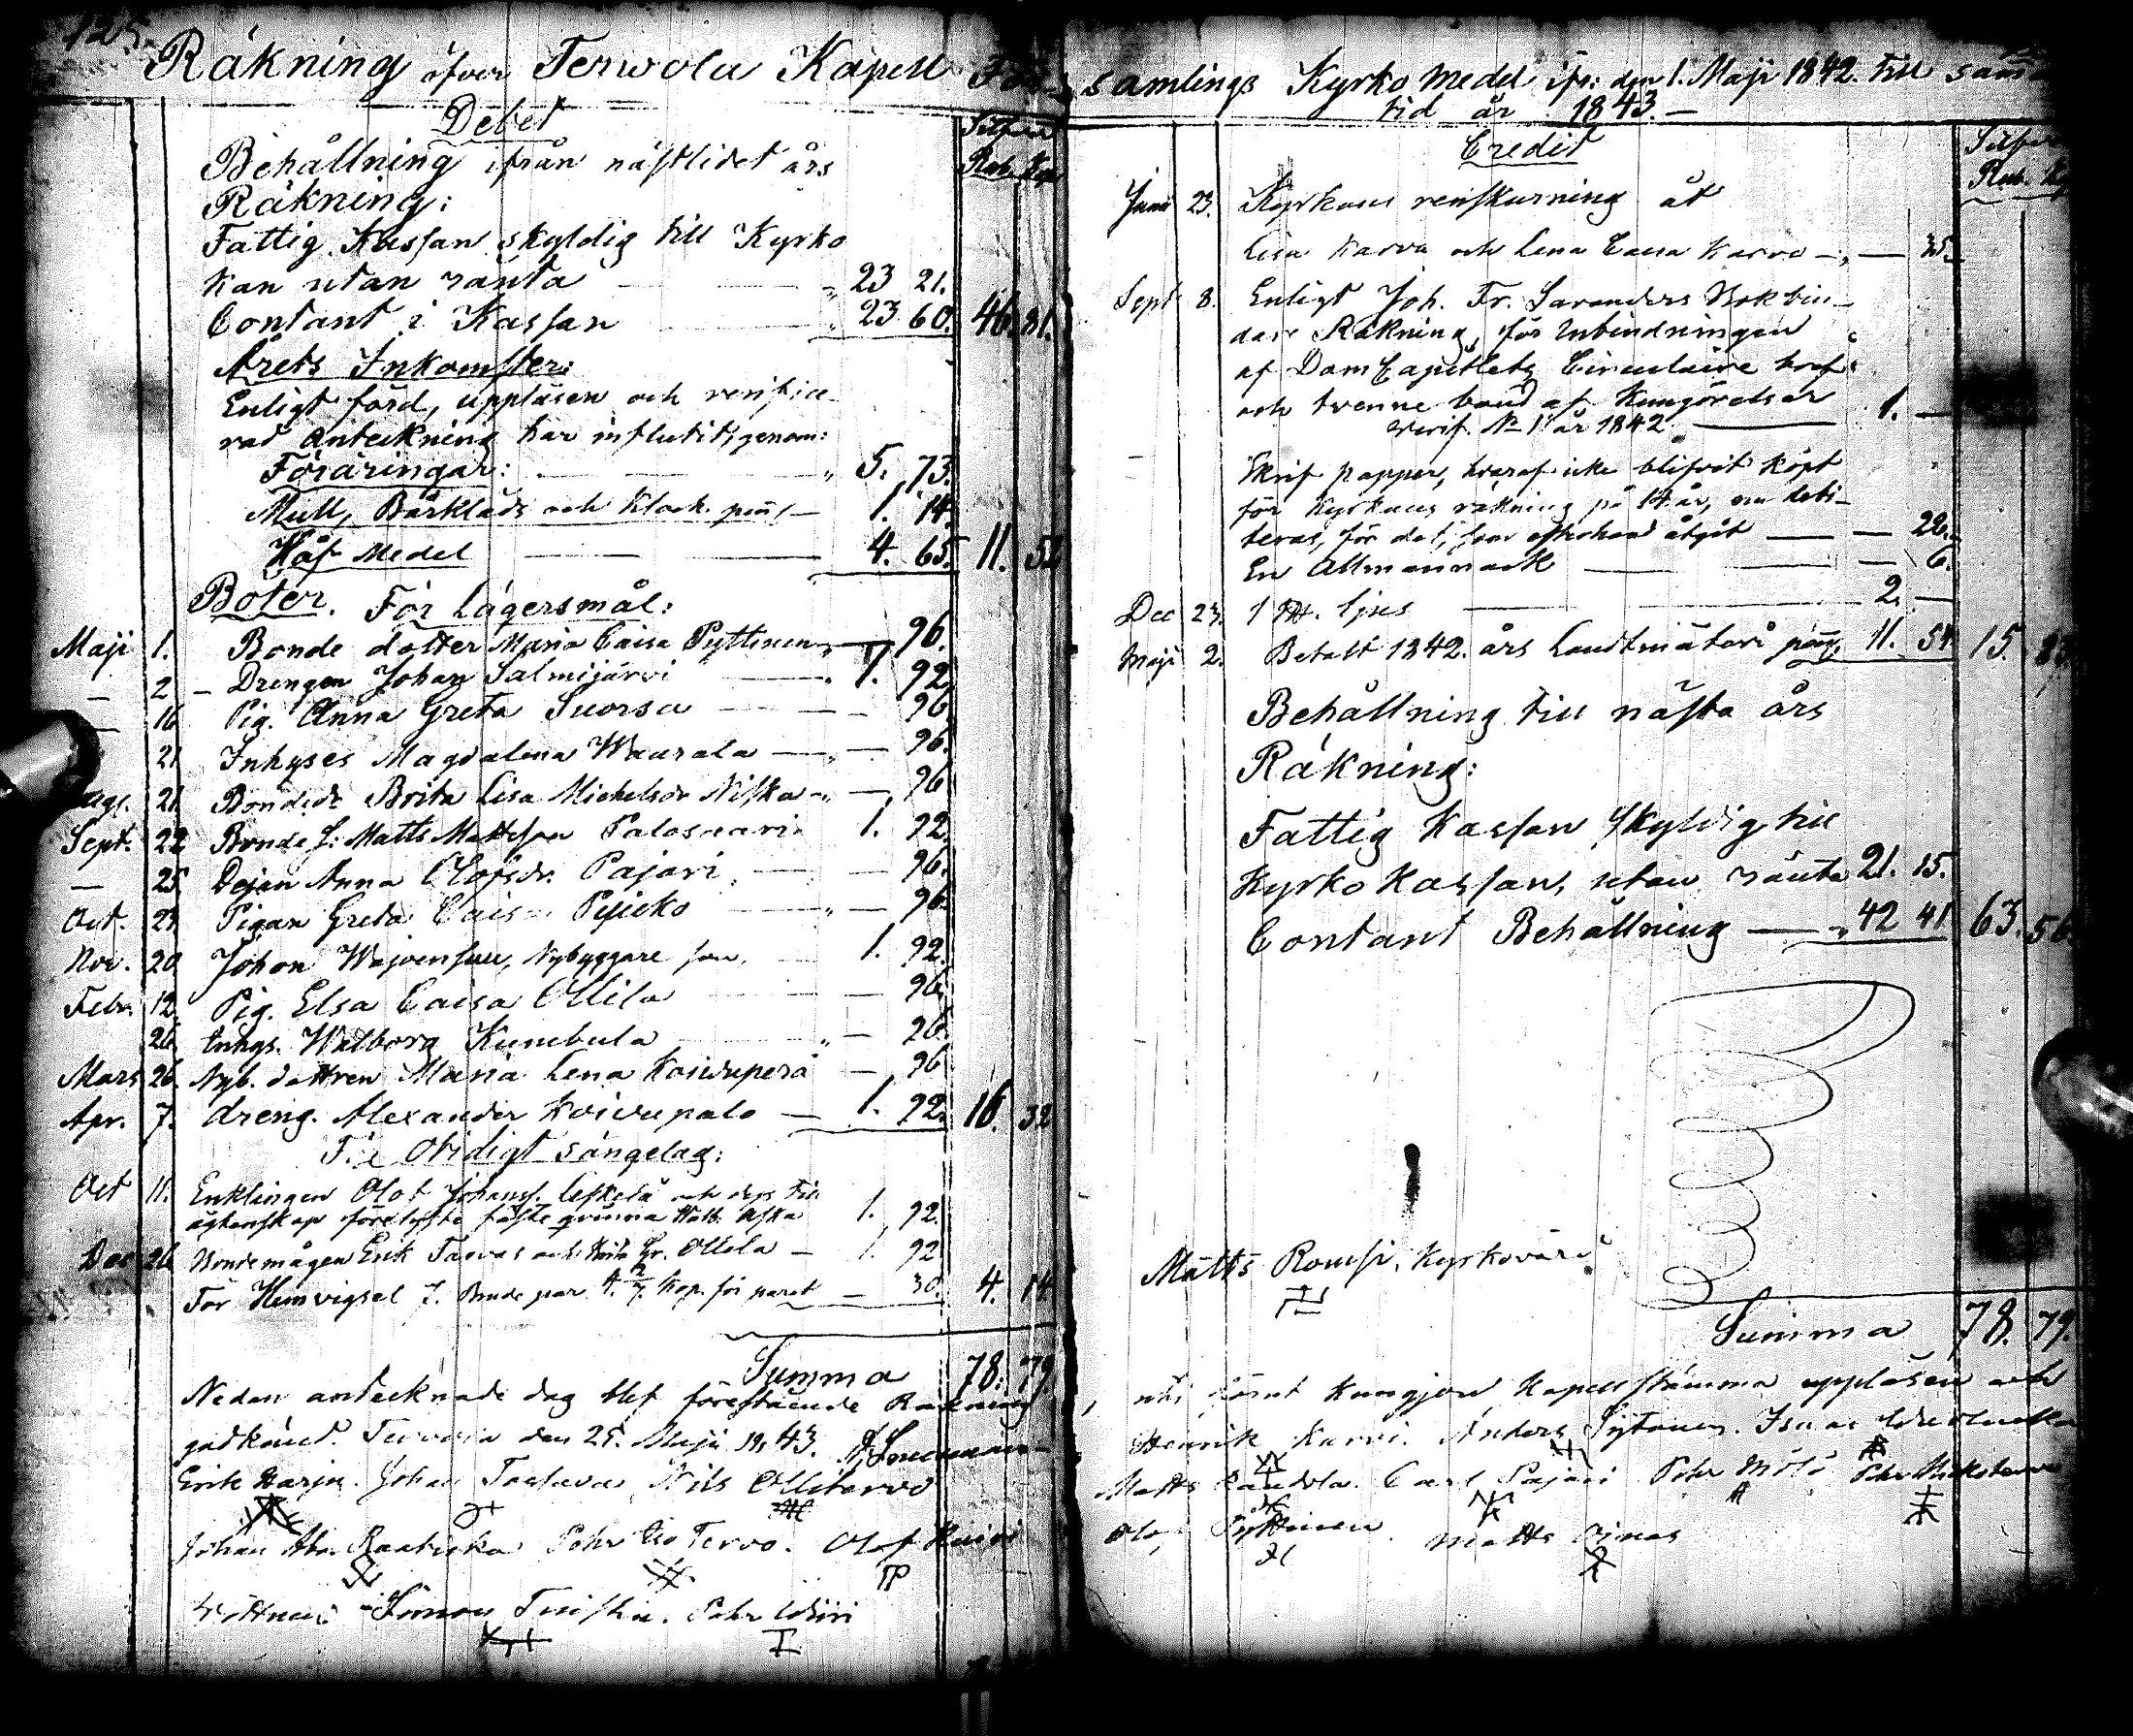 125.
Räkning öfver Terwola Kapell För-
Debet
Silfver
Rub. Kop
Behållning ifrån nästlidet års
Räkning:
Fattig Kassan skyldig till Kyrko
kan utan ränta — „ 23 21.
Contant i Kassan — „ 23 60. 46. 81.
Årets Inkomster:
Enligt förd, uppläsen och verifice-
rad Anteckning har influtit, genom:
Föräringar: — „ 5. 73.
Mull, Bårkläds och Klock. penn — 1. 14.
Håf Medel — 4. 65. 11. 52
Böter. För Lägersmål:
Maji 1. Bonde dotter Maria Caisa Pyttinen — 96.
— 2 — Drengen Johan Salmijärvi — 1. 92
— 16 Pig. Anna Greta Suorsa — 96
21 Inhyses Magdalena Waarala — 96.
Aug. 21 Bondedr Brita Lisa Michelsdr Niska — 96
Sept. 22 Bonde S: Matts Mattsson Palosaari 1. 92.
— 25 Dejan Anna Olofsdr. Pajari — 96.
Oct. 23 Pigan Greta Caisa — 96.
Nov. 20 Johan Nybyggare son, 1. 92.
Febr. 12. Pig. Elsa Caisa Ollila — 96.
26 Enhys. Walborg Kumbula — 96.
Mars 26. Nyb. dottren Maria Lena Koivuperä — 96
Apr. 7. dreng. Alexander Koivupalo — 1. 92. 16. 32
För Otidigt sängelag:
Oct 11. Enklingen Olof Johanss. och dess till
ägtenskap förelyste fäste qvinna 1. 92.
Dec 26 Bondemågen Erik och Gr. Ollila — 1. 92
För Hemvigsel 7. Brude par 4. 2/7. Kop. för paret — 30 4. 14
Summa 78. 79
Nedan antecknade dag blef förestående Räkning
godkänd. Tervola den 25. Maji 1843.
Erik Harju. Johan Nils Ollitervo
Johan Abr. Raatikka Pehr Tervo. Olof
Simon Pehr
samlings Kyrko Medel ifr: den 1. Maji 1842. till samma
tid år 1843. —
Credit
Silfver
Rub. Kop
Junii 23. Kyrkans renskurning åt
Lisa Karvo och Lena Caisa Karvo — 35.
Sept 8. Enligt Joh. Fr. Bokbin-
dare Räkning, för Inbindningen
af Dom Capitlets Circulaire bref
och tvenne band af Kungörelser
verif. No 1 år 1842. — 1. —
Skrif papper, hvaraf icke blifvit köpt
för Kyrkans räkning på 14. år, nu debi-
teras, för det, som efterhand åtgåt — 26.
En Allmannack — 6.
Dec 23. 1 ljus — 2. —
Maji 2. Betalt 1842. års Landtmäteri peng. 11. 54. 15. 23.
Behållning till nästa års
Räkning:
Fattig Kassan skyldig till
Kyrko Kassan, utan ränta 21. 15.
Contant Behållning — „ 42 41 63. 56.
Matts Romsi, Kyrkovärd
Summa 78. 79.
uti kungjord Kapellstämma uppläsen och
Henrik Karvi. Anders Isaac
Matts Carl Pajari Pehr Pehr
Olof Pyttinen Matts